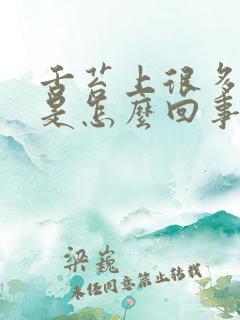 舌苔上很多
是怎麼回事
梁巍
未经同意禁止转载